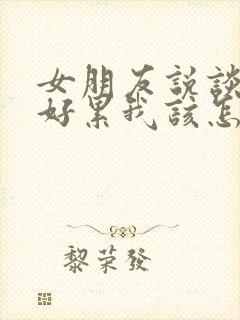 女朋友説談
好累我該怎
黎荣發